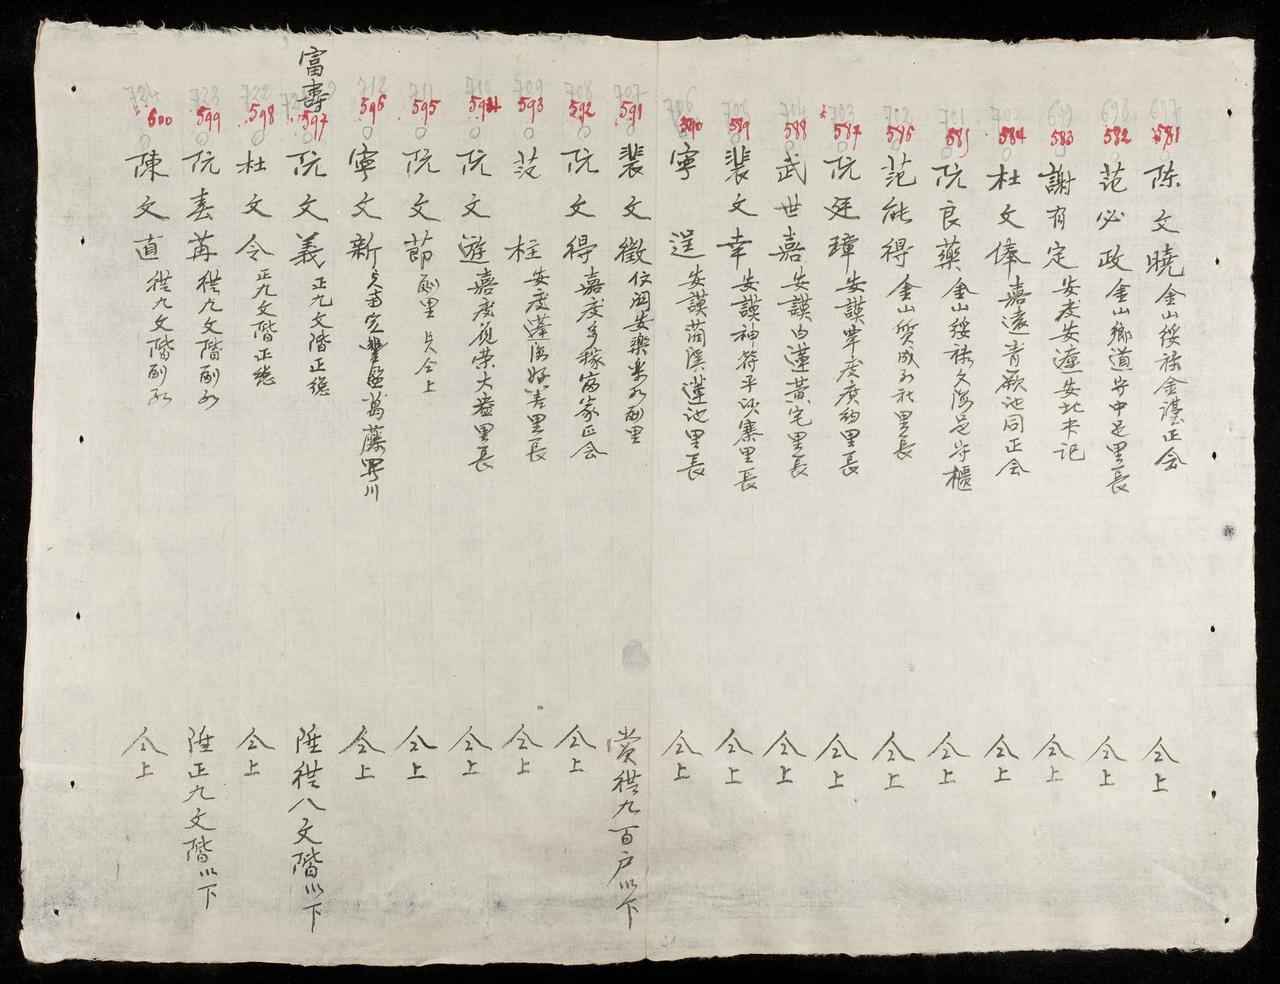 697
581
陈文曉金山绥祿金谌正会
仝上
698
582
范必政金山鄉道守中足里長
仝上
699
583
謝有定安度安蓮安北书记
仝上
700
584
杜文俸嘉遠青厥池同正会
仝上
701
585
阮良藥金山绥祿文海足守櫃
仝上
702
586
范能得金山質成社里長
仝上
703
587
阮廷璋安謨阜度廣約里長
仝上
704
588
武世嘉安謨白蓮黄宅里長
仝上
705
589
裴文幸安謨神符平次寨里長
仝上
706
590
寧逞安謨蕳溪蓮池里長
仝上
707
591
裴文徵安樂副里
賞從九百户以下
708
592
阮文得嘉度多稼富家正会
仝上
709
593
范柱安度蓮好善里長
仝上
710
594
阮文遊嘉度大益里長
仝上
711
595
阮文節副里仝上
仝上
712
596
寧文新萬藤川
仝上
富壽
597
阮文義正九文階正總
陞從八文階以下
722
598
杜文令正九文階正總
仝上
723
599
阮春苒從九文階副
陞正九文階以下
724
600
陳文直從九文階副
仝上
31